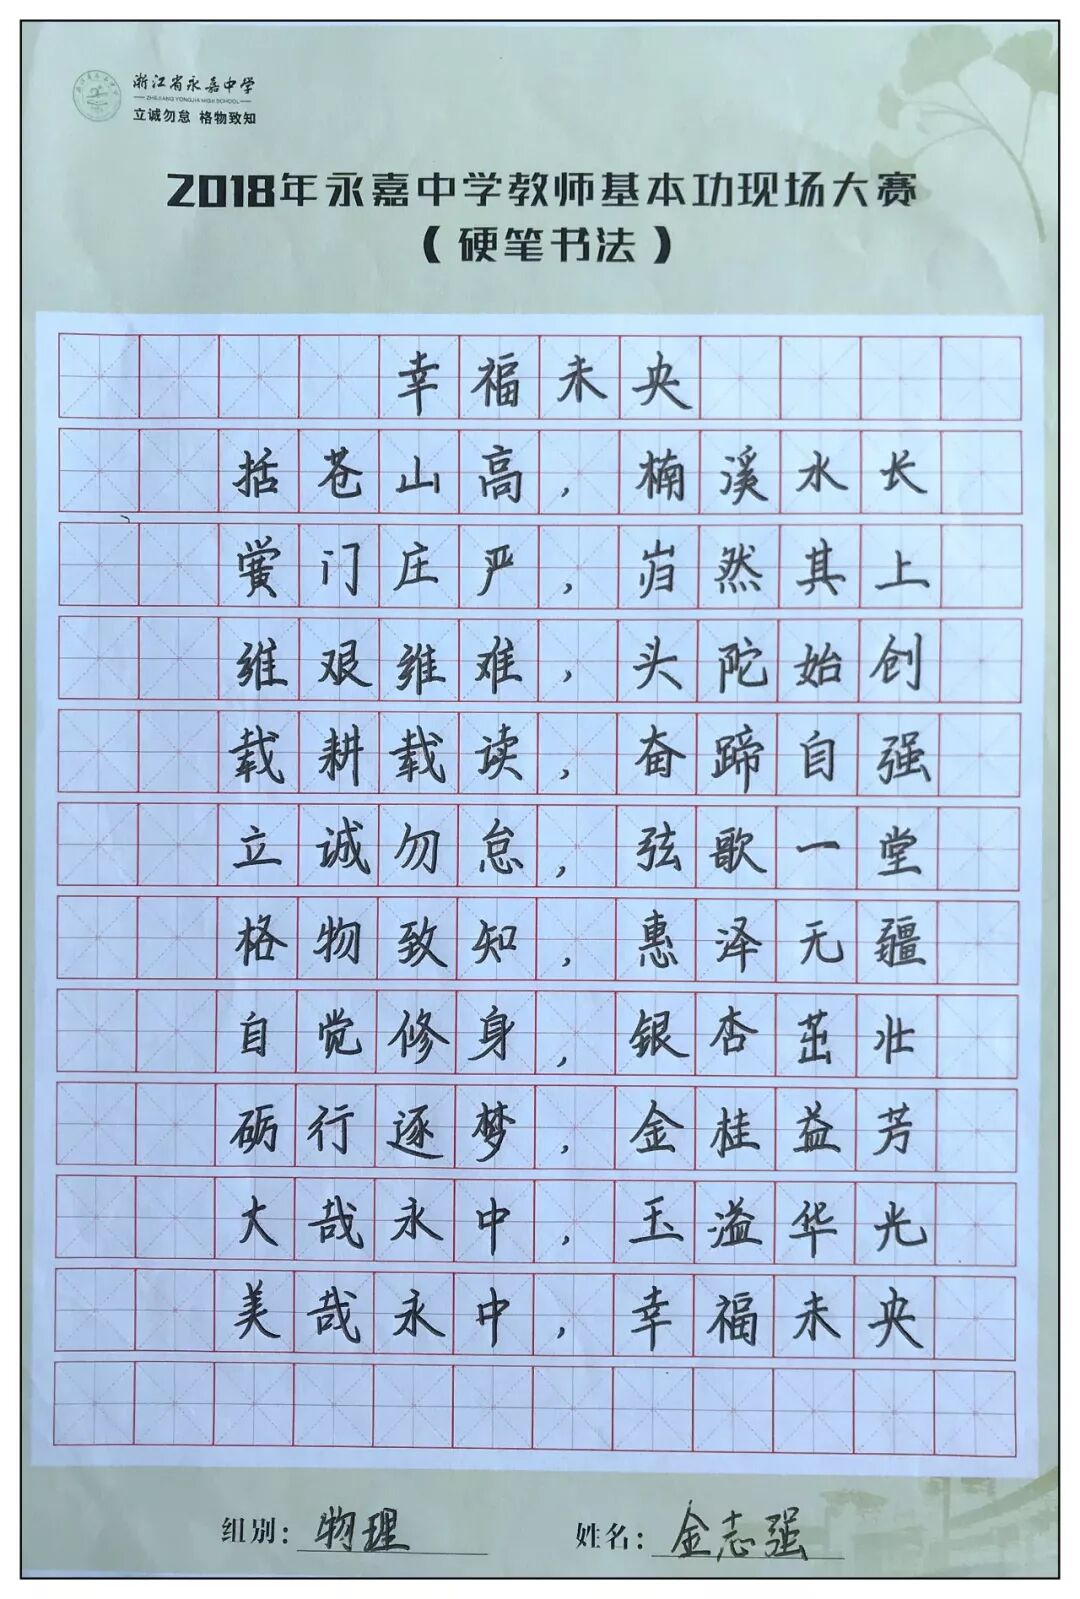 浙江省永嘉中学
ZHEJIANG YONGJIA HIGH SCHOOL
立诚勿怠 格物致知
2018年永嘉中学教师基本功现场大赛
（硬笔书法）
幸福未央
括苍山高，楠溪水长
黉门庄严，岿然其上
维艰维难，头陀始创
载耕载读，奋蹄自强
立诚勿怠，弦歌一堂
格物致知，惠泽无疆
自觉修身，银杏茁壮
砺行逐梦，金桂益芳
大哉永中，玉溢华光
美哉永中，幸福未央
组别：物理 姓名：金志强